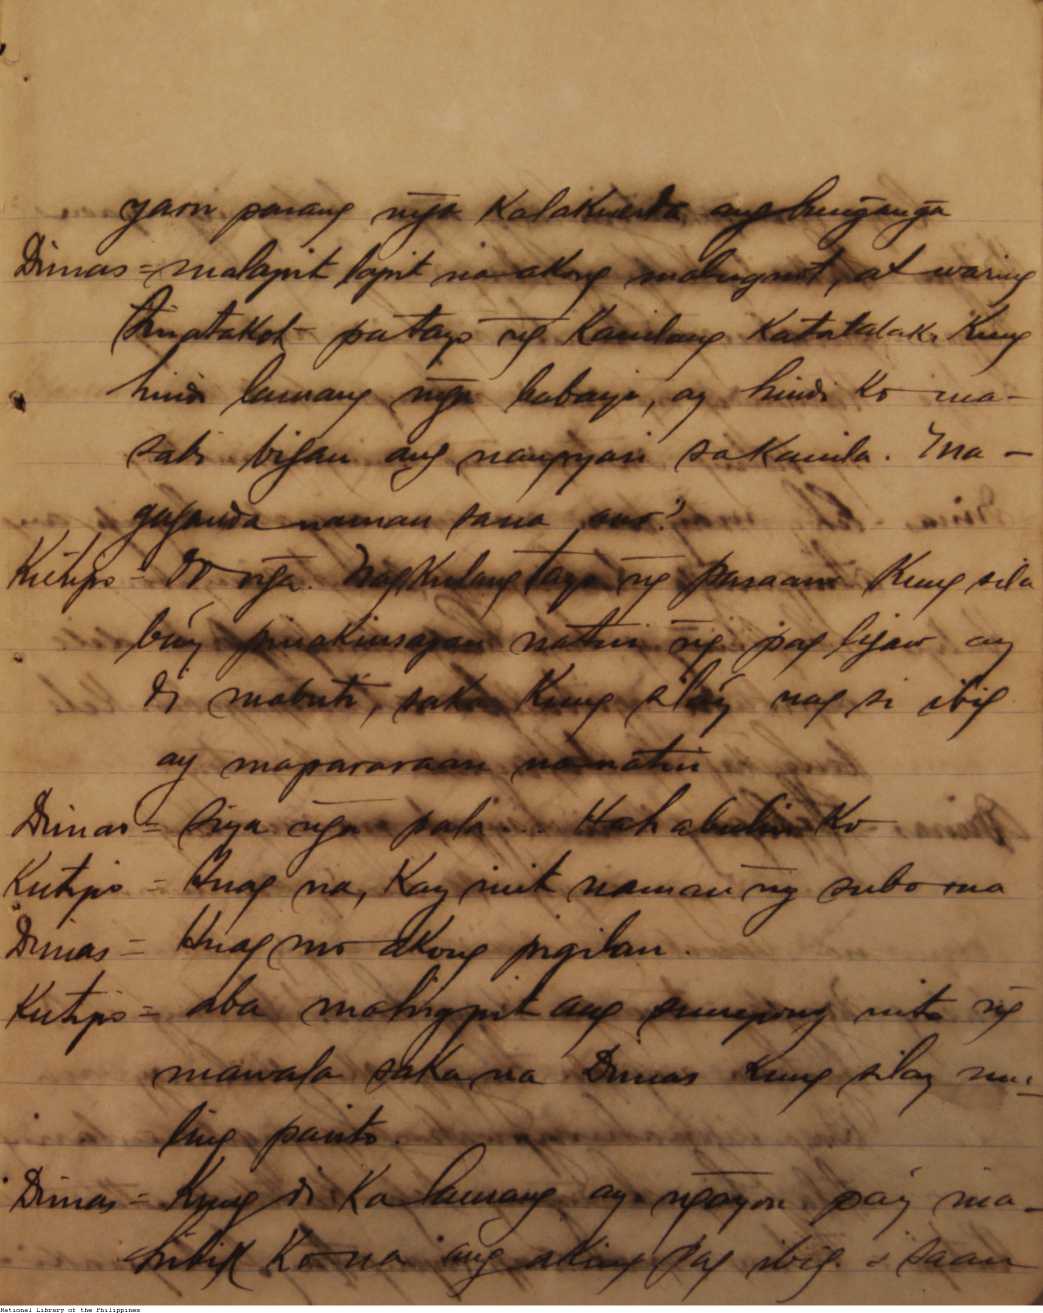 yaon parang mḡa Kalakwerda ang bunḡanḡa
Dimas = malapit lapit na akong mabugnot, at waring
tinatakot pa tayo nḡ Kanilang Katatalak. Kung
hindi lamang mḡa babayi, ay hindi Ko ma-
sabi bigau ang nangyari sa Kanila. Ma-
gaganda naman sana, ano?
Kutipio = Oo nḡa. Nagkulang tayo nḡ paraan Kung sila
bá'y pinakiusapan natin nḡ pag ligaw ay
di mabuti, saka Kung sila'y nag si ibig
ay mapararaan na natin
Dimas = Siya nḡa pala... Hahabulin Ko
Kutipio = Huag na, Kay init naman nḡ subo mo
Dimas = Huag mo akong pigilan.
Kutipio = aba mahigpit ang nito nḡ
mawala saka na Dimas Kung sila'y mu-
ling parito.
Dimas = Kung di Ka lamang ay nḡayon pa'y ma-
hibik Ko na ang aking pag ibig. saan
National Library of the Philippines